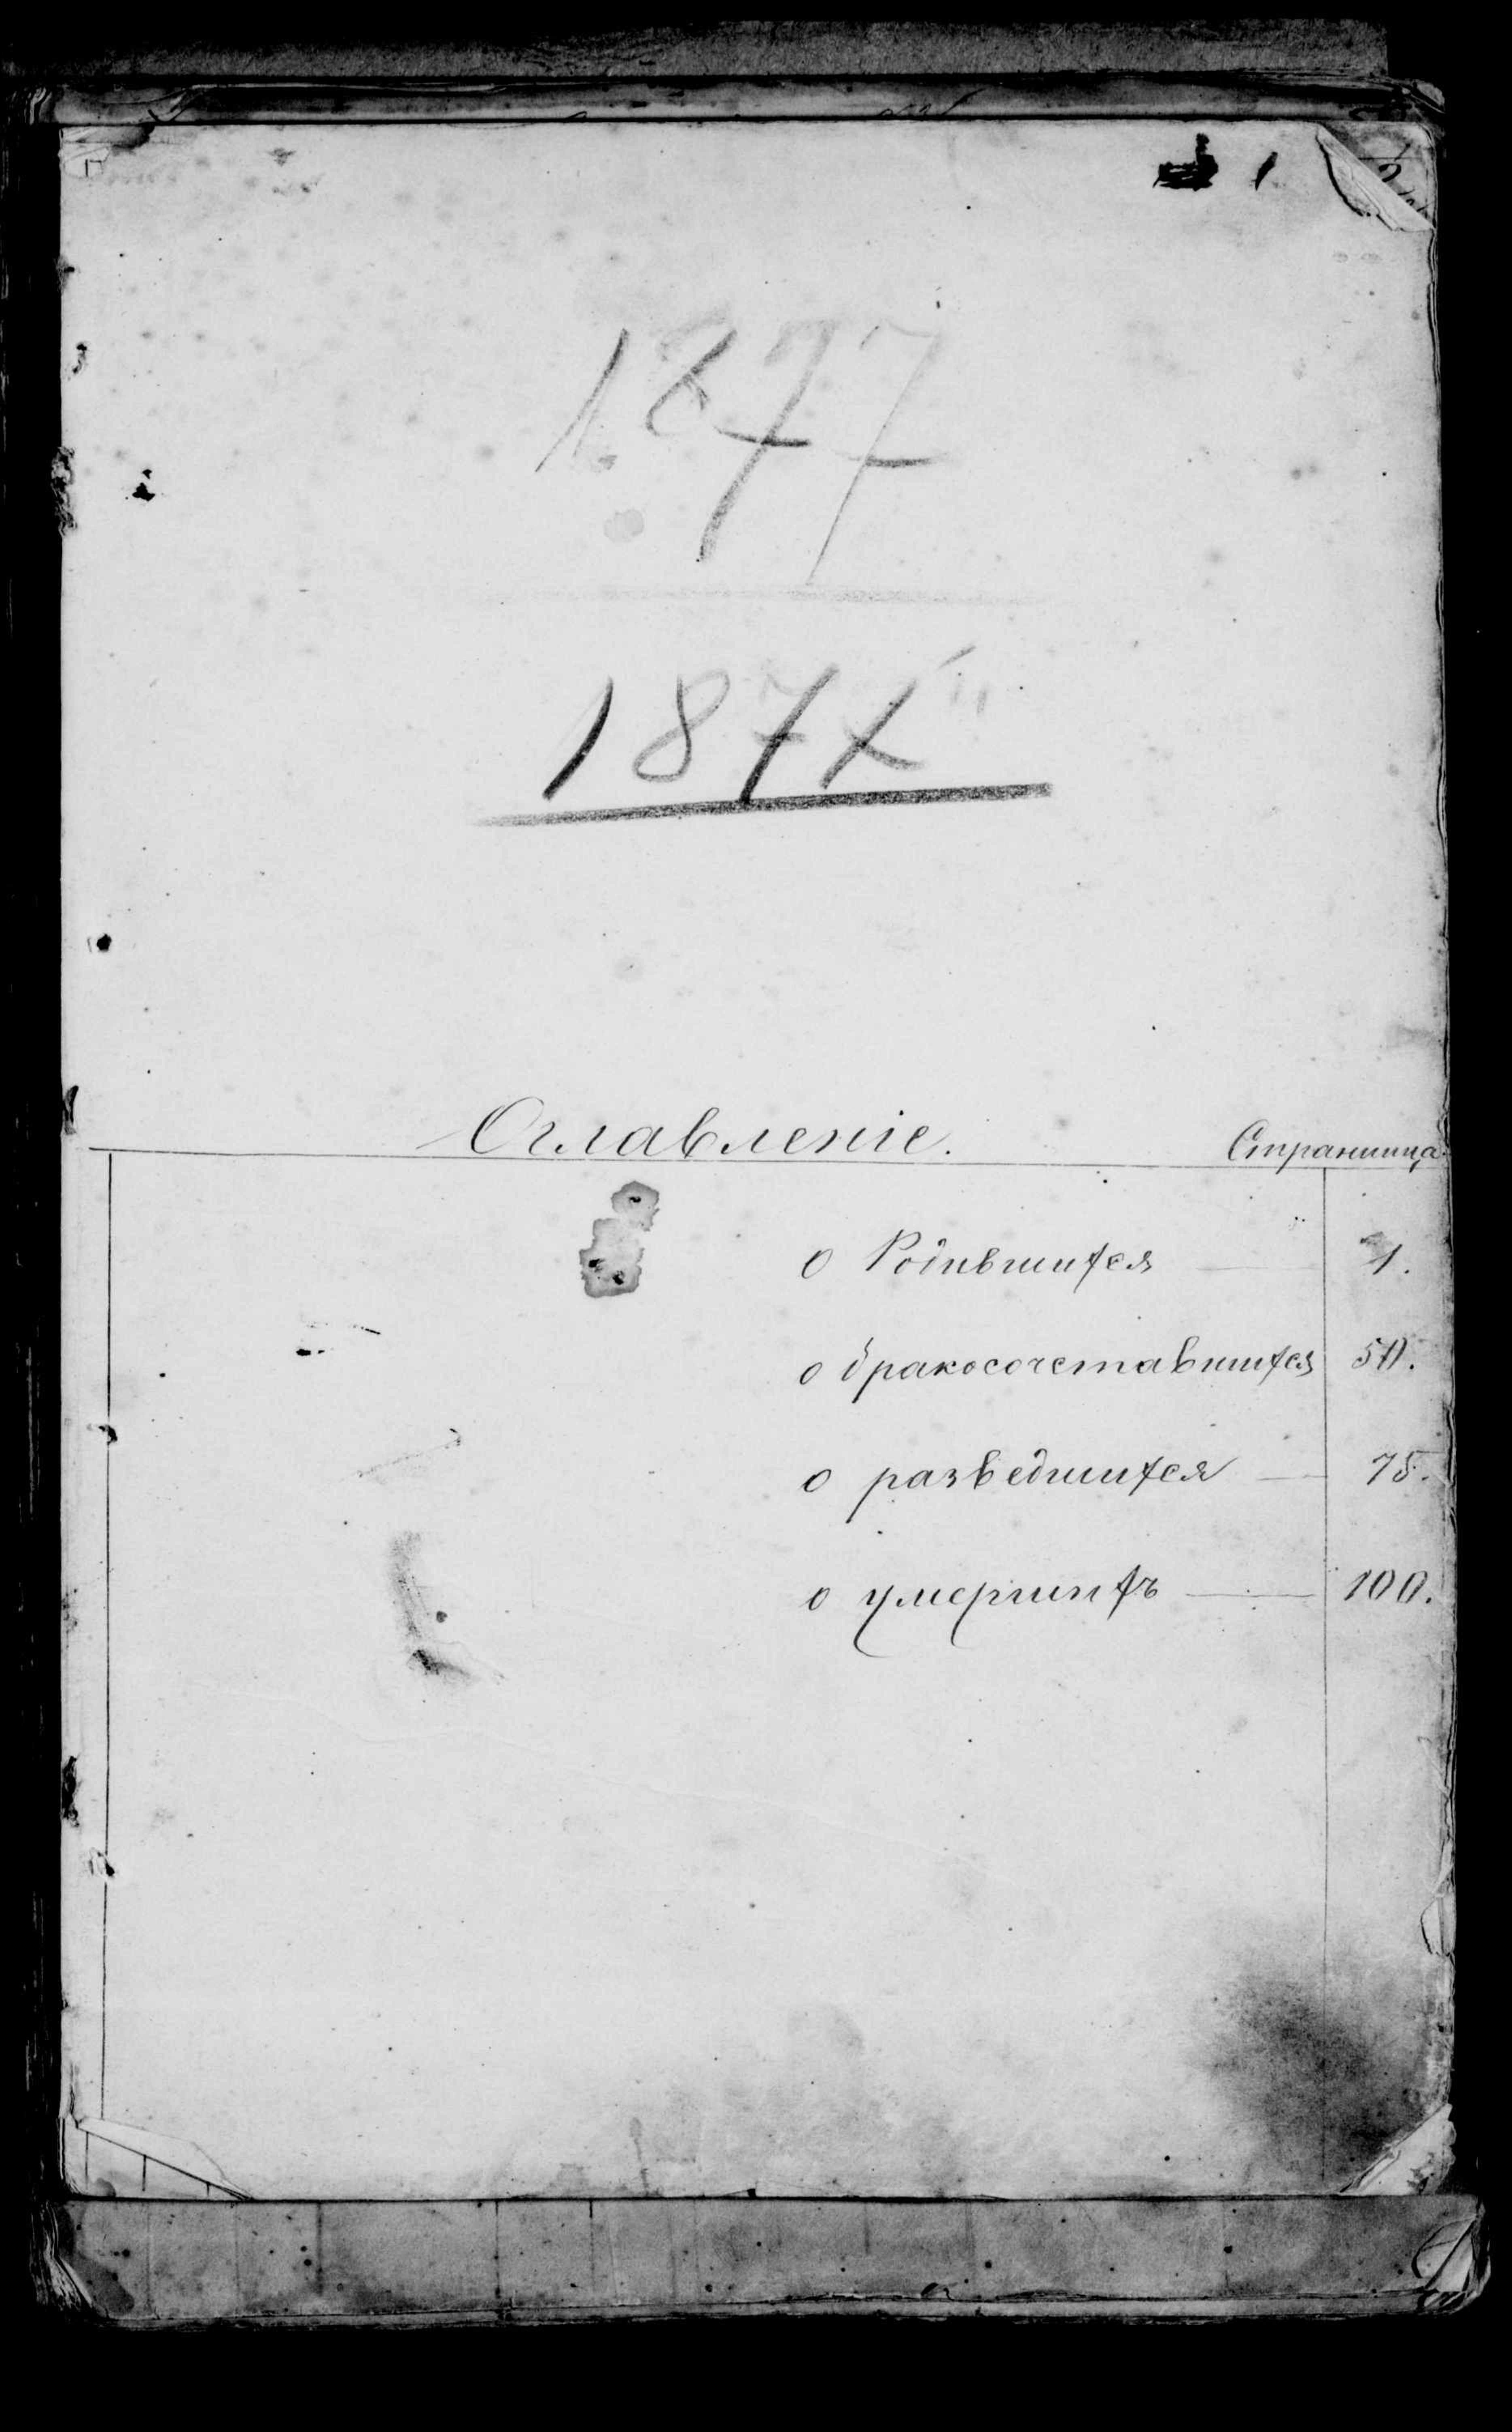 1
1877
1877
Оглавленіе. Страница
о Родившихся — 1.
о бракосочетавшихся 50.
о разведшихся — 75.
о умершихъ — 100.